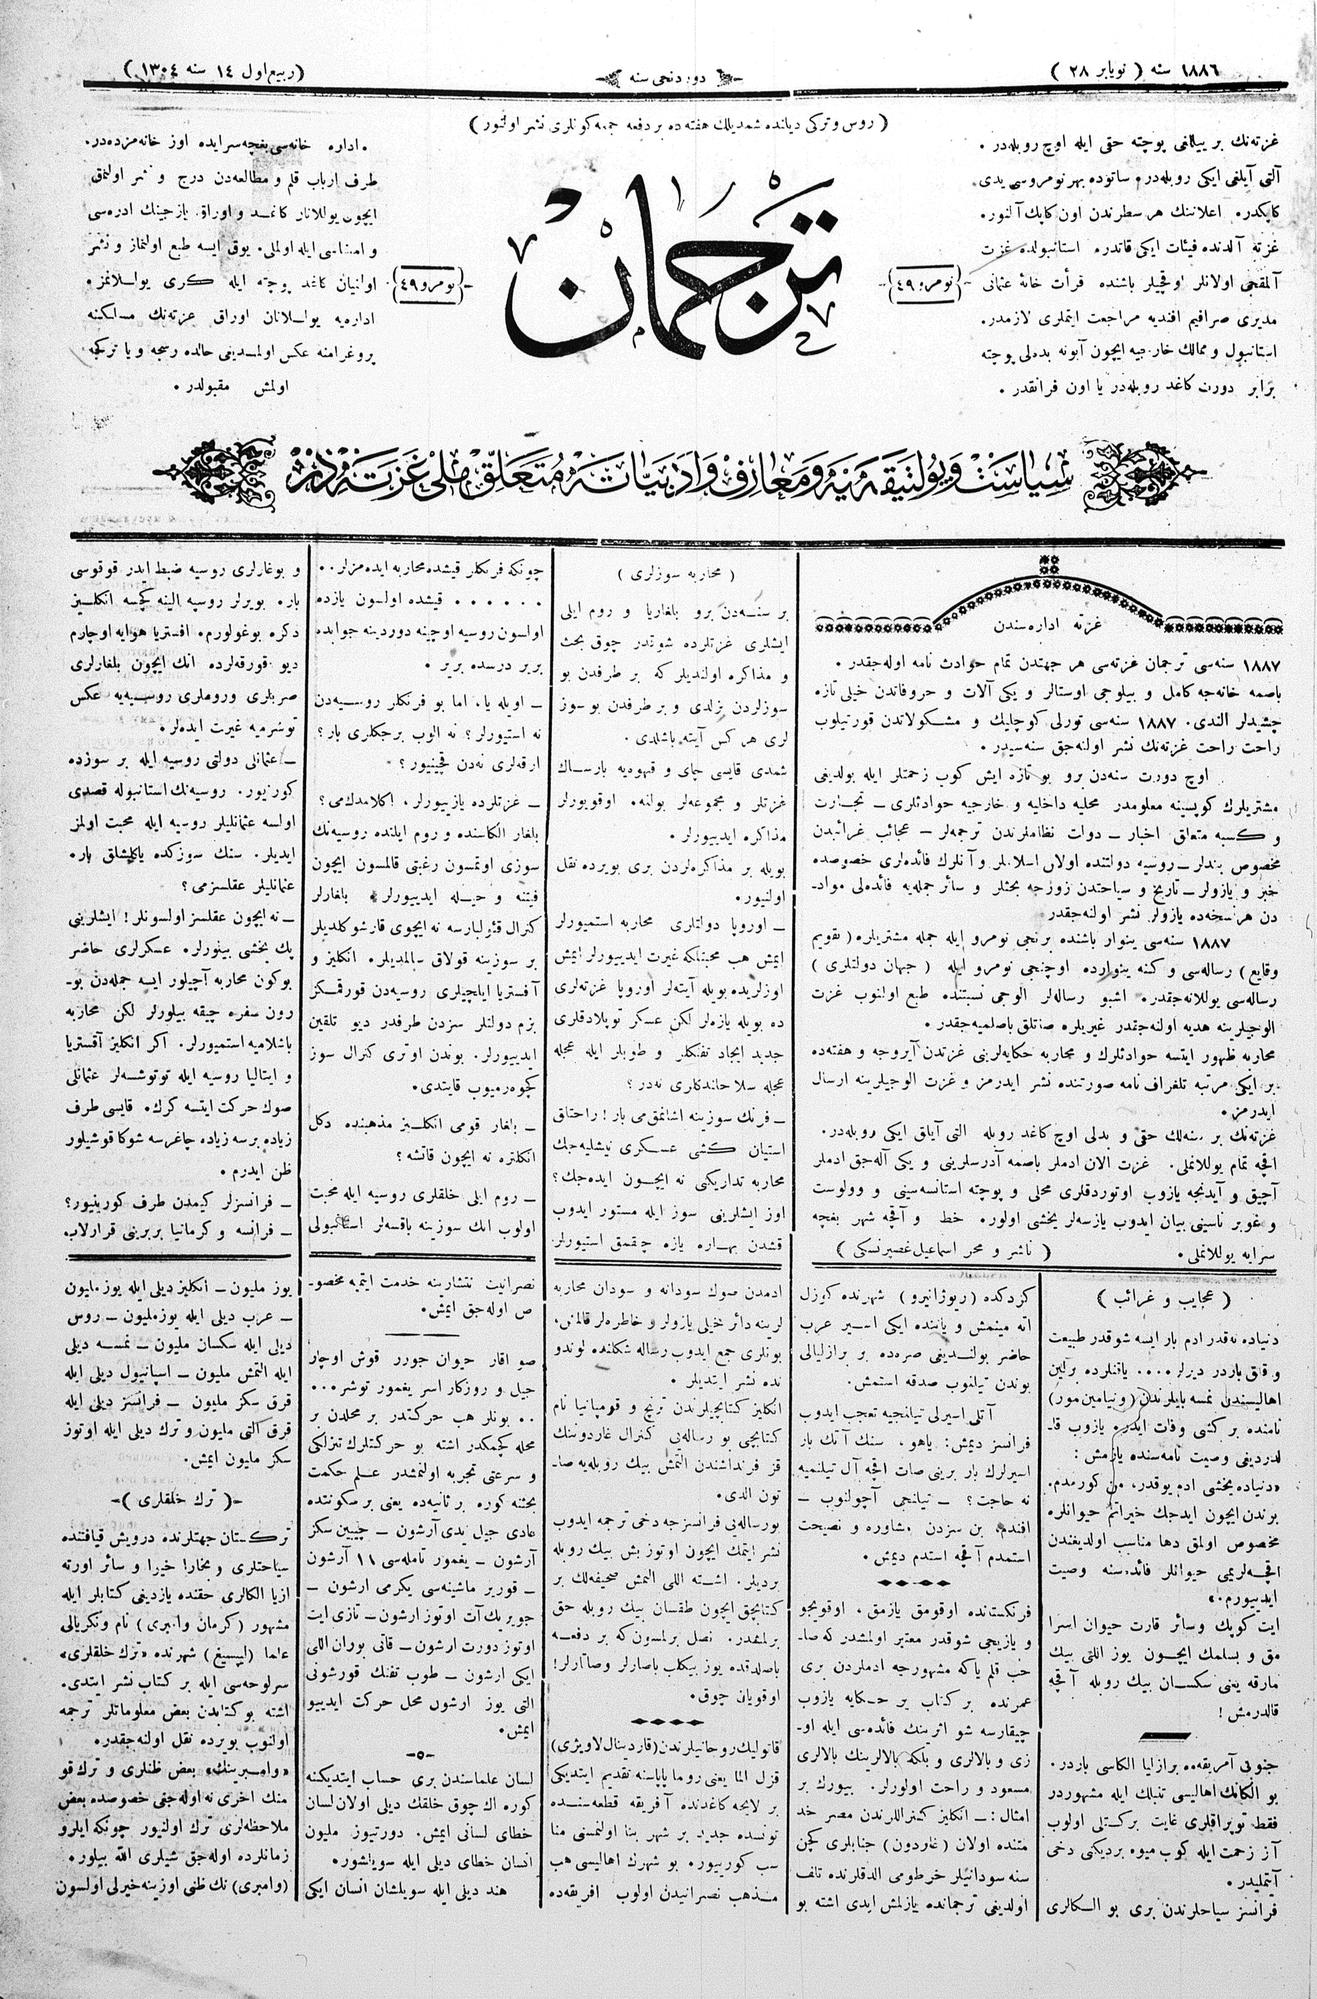 ١٨٨٦ سنه ( نويابر ٢٨ )
دوردنجی سنه
( ربیع اول ١٤ سنه ١٣٠٤ )
( روس و ترکی دیلنده شمدیلك هفته ده بر دفعه جمعه کونلری نشر اولنور )
غزته‌نك بر ییللغی پوچته حقی ایله اوچ روبله‌در .
آلتی آیلغی ایکی روبله‌در. ساتوده بهر نومروسی یدی
کاپکدر. اعلاننك هر سطرندن اون کاپك آلنور.
غزته آلدنده فیئات ایکی قاتدره استانبولده غزت
آلمقچی اولانلر اوقچیلر باشنده قرأت خانهٔ عثمانی
مدیری صرافیم افندیه مراجعت ایتملری لازمدر.
استانبول و ممالك خارجیه ایچون آبونه بدلی پوچته
برابر دورت کاغد روبله‌در یا اون فرانقدر .
نومرو ٤٩
ترجمان
نومرو ٤٩
اداره خانه‌سی بغچه سرایده اوز خانه مزده‌در.
طرف ارباب قلم و مطالعه‌دن درج و نشر اولنمق
ایچون یوللانار کاغد و اوراق یازجینك ادره‌سی
و امضاسی ایله اولملی. یوق ایسه طبع اولنماز و نشر
اولنیان کاغد پوچته ایله کری یوللانمز.
اداره‌یه یوللانان اوراق غزته‌نك مسلکنه
پروغرامنه عکس اولمدیغی حالده رسجه و یا ترکجه
اولمش مقبولدر .
سیاست و پولتیقه‌یه و معارف و ادبیاته متعلق ملی غزته‌در
غزته اداره سندن
١٨٨٧ سنه‌سی ترجمان غزته‌سی هر جهتدن تمام حوادث نامه اوله‌جقدر .
باصمه خانه‌جه کامل و بیلوجی اوستالر و یکی آلات و حروفاتدن خیلی تازه
چشیدلر الندی. ١٨٨٧ سنه‌سی تورلی کوچلیك و مشکولاتدن قورتیلوب
راحت راحت غزته‌نك نشر اولنه‌جق سنه سیدر .
اوچ دورت سنه‌دن برو بو تازه ایش کوب زحمتلر ایله بولدیغی
مشتریلرك کوپسینه معلومدر محلیه داخلیه و خارجیه حوادثلری ــ تجارت
و کسبه متعلق اخبار ــ دولت نظاملرندن ترجمه‌لر ــ عجائب غرائبدن
مخصوص بندلر ــ روسیه دولتنده اولان اسلاملر و آنلرك فائده‌لری خصوصده
خبر و یازولر ــ تاریخ و سیاحتدن زوزجه بحثلر و سائر جمله‌یه فائده‌لی مواد-
دن هر نسخه‌ده یازولر نشر اولنه‌جقدر
١٨٨٧ سنه‌سی ینوار باشنده برنجی نومرو ایله جمله مشتریلره ( تقویم
وقایع ) رساله‌سی و کنه ینوارده اوچنجی نومرو ایله ( جهان دولتلری )
رساله‌سی یوللانه‌جقدر. اشبو رساله‌لر الوجی نسبتنده طبع اولنوب غزت
الوجیلرینه هدیه اولنه‌جقدر غیریلره صاتلق باصلمیه‌جقدر .
محاربه ظهور ایتسه حوادثلرك و محاربه حکایه‌لرینی غزتدن آیروجه و هفته‌ده
بر ایکی مرتبه تلغراف نامه صورتنده نشر ایدرمز و غزت الوجیلرینه ارسال
ایدرمز .
غزته‌نك بر سنه‌لك حقی و بدلی اوچ کاغد روبله التی آیلق ایکی روبله‌در.
اقچه تمام یوللانملی. غزت الان ادملر باصمه آدرسلرینی و یکی آله‌جق ادملر
آچیق و آیدنجه یازوب اوتوردقلری محلی و پوچته استانسه‌سینی و وولوست
و غوبرناسینی بیان ایدوب یازسه‌لر یخشی اولور. خط و آقچه شهر بغچه
سرایه یوللانملی .
( ناشر و محرر اسماعیل غصپرنسکی )
( محاربه سوزلری )
بر سنه‌دن برو بلغاریا و روم ایلی
ایشلری غزتلرده شوندر چوق بحث
و مذاکره اولندیلر که بر طرفدن بو
سوزلردن بزلدی و بر طرفدن بو سوز
لری هر کس آیته باشلدی.
شمدی قایسی چای و قهوه‌یه بارساك
غزتلر و مجموعه‌لر بولنه. اوقویورلر
مذاکره ایدییورلر.
بویله بر مذاکره‌لردن بری بویرده نقل
اولنیور.
ــ اوروپا دولتلری محاربه استمیورلر
ایمش هب محبتلکه غیرت ایدییورلر ایمش
اوزلریده بویله آیته‌لر اوروپا غزته‌لری
ده بویله یازه‌لر لکن عسکر توپلادقلری
جدید ایجاد تفنکلر و طوبلر ایله عجله
عجله سلاحلندکلری نه‌در ؟
ــ فرنك سوزینه اشانمق می بار ! راحتلق
استیان کشی عسکری نیشلیه‌جك
محاربه تدارکی نه ایچون ایده‌جك ؟
اوز ایشلرینی سوز ایله مستور ایدوب
قشدن بهاره یازه چقمق استیورلر.
چونکه فرنکلر قیشده محاربه ایده‌مزلر. .
. . . . . . قیشده اولسون یازده
اولسون روسیه اوچینه دوردینه جوابده
بریر درسده بریر .
ــ اویله یا، اما بو فرنکلر روسیه‌دن
نه استیورلر ؟ نه الوب برجکلری بار ؟
ارقه‌لری نه‌دن قچینیور ؟
ــ غزتلرده یازییورلر. اکلامدك می ؟
بلغار الکاسنده و روم ایلنده روسیه‌نك
سوزی اوتمسون رغبتی قالمسون ایچون
فیتنه و حیله ایدییورلر. بلغارلر
کنرال قئولبارسه نه ایچوی قارشو کلدیلر
بر سوزینه قولاق سالمدیلر. انکلیز و
آفستریا ایلچیلری روسیه‌دن قورقمکز
بزم دولتلر سزدن طرفدر دیو تلقین
ایدییورلر. بوندن اوتری کنرال سوز
کچوه‌رمیوب قایتدی.
ــ بلغار قومی انکلیز مذهبنده دکل
انکلتره نه ایچون قاتشه ؟
ــ روم ایلی خلقلری روسیه ایله محبت
اولوب انك سوزینه باقسه‌لر استانبولی
و بوغازلری روسیه ضبط ایدر قوقوسی
بار. بویرلر روسیه الینه کچسه انکلیز
دکره بوغولورم. افستریا هوایه اوچارم
دیو قورقه‌لرده انك ایچون بلغارلری
صربلری و روملری روسیه‌یه عکس
توشرمیه غیرت ایده‌لر.
ــ عثمانلی دولتی روسیه ایله بر سوزده
کورنیور. روسیه‌نك استانبوله قصدی
اولسه عثمانلیلر روسیه ایله محبت اولمز
ایدیلر. سنك سوزکده یاکلیشلق بار.
عثمانلیلر عقلسزمی ؟
ــ نه ایچون عقلسز اولسونلر ! ایشلرینی
پك یخشی بینورلر. عسکرلری حاضر
بوکون محاربه آچیلور ایسه جمله‌دن بو-
رون سفره چیقه بیلورلر لکن محاربه
باشلامیه استمیورلر. اکر انکلیز آفستریا
و ایتالیا روسیه ایله توتوشسه‌لر عثمانلی
صوك حرکت ایتسه کرك. قایسی طرف
زیاده برسه زیاده چاغرسه شوکا قوشیلور
ظن ایدرم .
ــ فرانسزلر کیمدن طرف کورینیور ؟
ــ فرانسه و کرمانیا بربرینی قرارلاب.
( عجایب و غرائب )
دنیاده نه‌قدر ادم بار ایسه شوقدر طبیعت
و قلق باردر دیرلر . . . . یاقنلرده برلین
اهالیسندن نمسه بایلرندن ( ونیامین مور )
نامنده بر کشی وفات ایدره یازوب قا-
لدردیغی وصیت نامه‌سنده یازمش :
«دنیاده یخشی ادم یوقدر. من کورمدم.
برندن ایچون ایدجك خیراتم حیوانلره
مخصوص اولمق دها مناسب اولدیغندن
اقچه‌لریمی حیوانلر فائده‌سنه وصیت
ایدییورم.»
ایت کوپك و سائر قارت حیوان اسرا
مق و بسلمك ایچون یوز اللی بیك
مارقه یعنی سکسان بیك روبله آقچه
قالدرمش !
جنوبی آمریقه‌ده برازلیا الکاسی باردر.
بو الکانك اهالیسی تنبلك ایله مشهوردر
فقط توپراقلری غایت برکتلی اولوب
آز زحمت ایله کوب میوه بردیکی دخی
آیتملیدر .
فرانسز سیاحلرندن بری بو الکالری
کزدکده ( ریوژانیرو ) شهرنده کوزل
اته مینمش و یاننده ایکی اسیر عرب
حاضر بولندیغی صره‌ده بر برازلیالی
بوندن تیلنوب صدقه استمش.
آتلی اسیرلی تیلانجیه تعجب ایدوب
فرانسز دیمش : یاهو، سنك آتك بار
اسیرلرك بار برینی صات اقچه آل تیلنمیه
نه حاجت ؟ ــ تیلانجی آچولنوب ــ
افندم. بن سزدن مشاوره و نصیحت
استمدم آقچه استدم دیمش.
فرنکستانده اوقومق یازمق. اوقویجو
و یازیجی شوقدر معتبر اولمشدر که صا-
حب قلم یاکه مشهورجه ادملردن بری
عمرنده بر کتاب بر حکایه یازوب
چیقارسه شو اثرینك فائده‌سی ایله او-
زی و بالالری و بلکه بالالرینك بالالری
مسعود و راحت اولورلر. بیورك بر
امثال : ــ انکلیز کنراللرندن مصر خد
متنده اولان ( غاردون ) جنابلری کچن
سنه سودانیلر خرطومی الدقلرنده تلف
اولدیغی ترجمانده یازلمش ایدی اشته بو
ادمدن صوك سودانه و سودان محاربه
لرینه دائر خیلی یازولر و خاطره‌لر قالمش.
بونلری جمع ایدوب رساله شکلنده لوندو
نده نشر ایتدیلر .
انکلیز کتابچیلرندن ترنچ و قومپانیا نام
کتابچی بو رساله‌یی کنرال غاردوننك
قز قرنداشندن التمش بیك روبله‌یه صا-
تون الدی.
بو رساله‌یی فرانسزجه دخی ترجمه ایدوب
نشر ایتمك ایچون اوتوز بش بیك روبله
بردیلر. اشته اللی التمش صحیفه‌لك بر
کتابچق ایچون طقسان بیك روبله حق
برلمشدر. نصل برلمسون که بر دفعه
باصلدقده یوز بیکلب باصارلر و صاتارلر !
اوقویان چوق.
قاتولیك روحانیلرندن ( قاردینال لاویژری )
قزل الما یعنی روما پاپاسنه تقدیم ایتدیکی
بر لایحه کاغدنده آفریقه قطعه‌سنده
تونسده جدید بر شهر بنا اولنمسنی منا
سب کورییور. بو شهرك اهالیسی هب
مذهب نصرانیدن اولوب افریقه‌ده
نصرانیت نتشارینه خدمت ایتمیه مخصو-
ص اوله‌جق ایمش.
صو اقار حیوان جورر قوش اوچار
جیل و روزکار اسر یغمور توشر. . .
. . بونلر هب حرکتدر بر محلدن بر
محله کچمکدر اشته بو حرکتلرك تیزلکی
و سرعتی تجربه اولنمشدر علم حکمت
بحثنه کوره بر ثانیه‌ده یعنی بر سکونتده
عادی جیل یدی آرشون ــ چیبین سکز
آرشون ــ یغمور تامله‌سی ١١ آرشون
ــ قوریر ماشینه‌سی یکرمی ارشون ــ
جویریك آت اوتوز ارشون ــ تازی ایت
اوتوز دورت ارشون ــ قاتی بوران اللی
ایکی ارشون ــ طوب تفنك قورشونی
التی یوز ارشون محل حرکت ایدییو
ایمش.
لسان علماسندن بری حساب ایتدیکنه
کوره اك چوق خلقك دیلی اولان لسان
خطای لسانی ایمش. دورتیوز ملیون
انسان خطای دیلی ایله سویلشور.
هند دیلی ایله سویلشان انسان ایکی
یوز ملیون ــ انکلیز دیلی ایله یوز ملیون
ــ عرب دیلی ایله یوز ملیون ــ روس
دیلی ایله سکسان ملیون ــ نمسه دیلی
ایله التمش ملیون ــ اسپانیول دیلی ایله
قرق سکز ملیون ــ فرانسز دیلی ایله
قرق التی ملیون و ترك دیلی ایله اوتوز
سکز ملیون ایمش.
-( ترك خلقلری )-
ترکستان جهتلرنده درویش قیافتنده
سیاحتلری و بخارا خیوا و سائر اورته
ازیا الکالری حقنده یازدیغی کتابلر ایله
مشهور ( کرمان وامبری ) نام ونکریالی
علما ( لیپسیغ ) شهرنده «ترك خلقلری»
سرلوحه‌سی ایله بر کتاب نشر ایتدی.
اشته بو کتابدن بعض معلوماتلر ترجمه
اولنوب بویرده نقل اولنه‌جقدر.
«وامبرینك» بعض ظنلری و ترك قو
منك اخری نه اوله‌جغی خصوصده بعض
ملاحظه‌لری ترك اولنیور چونکه ایلرو
زمانلرده اوله‌جق شیلری الله بیلور.
( وامبری ) نك ظنی اوزینه خیرلی اولسون